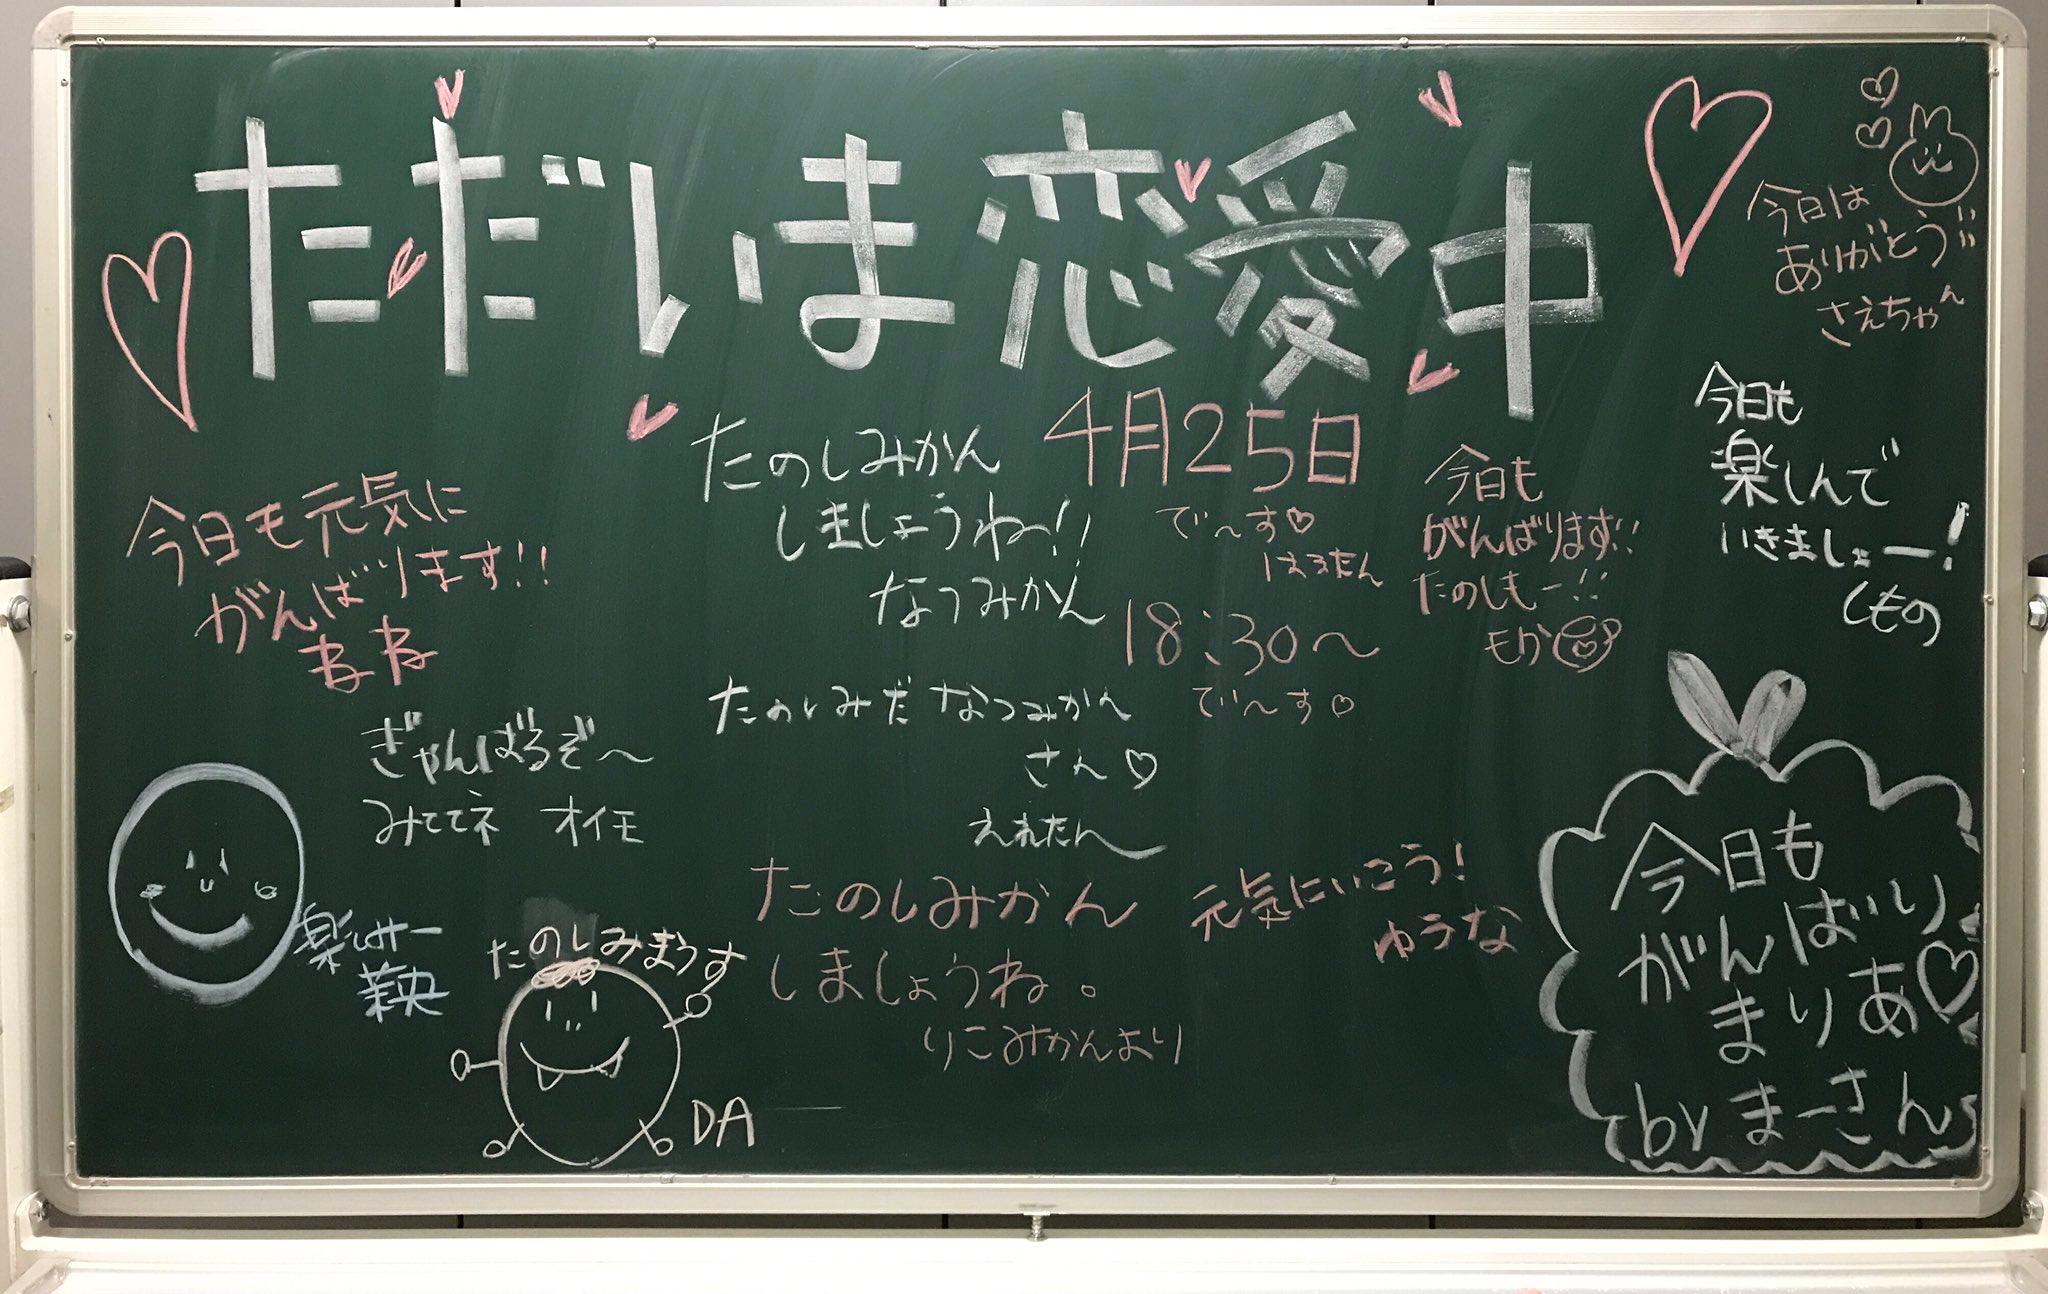 ただいま恋愛中
今日は
ありがとう!!
さえちゃん
今日も元気に
がんばります!!
ねね
たのしみかん
しましょうね〜!!
なつみかん
4月25日
で〜す♡
はるたん
18:30〜
で〜す♡
今日も
がんばります!!
たのしもー!!
もか
今日も
楽しんで
いきましょー!
くもの
ぎゃんばるぞ〜
みててネ オイモ
たのしみだ なつみかん
さん♡
えれたん
楽しみー
たのしみまうす
DA
たのしみかん
しましょうね。
りこみかんより
元気にいこう!
ゆうな
今日も
がんばり
まりあ♡
by まーさん